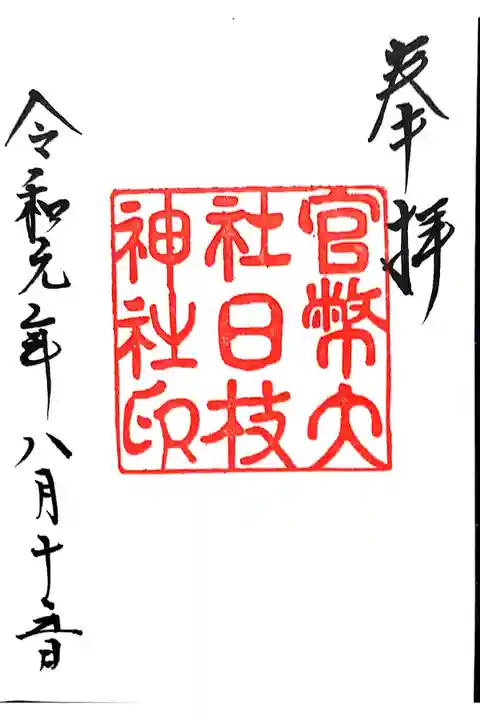 奉拝
官幣大
社日枝
神社印
令和元年八月十五日